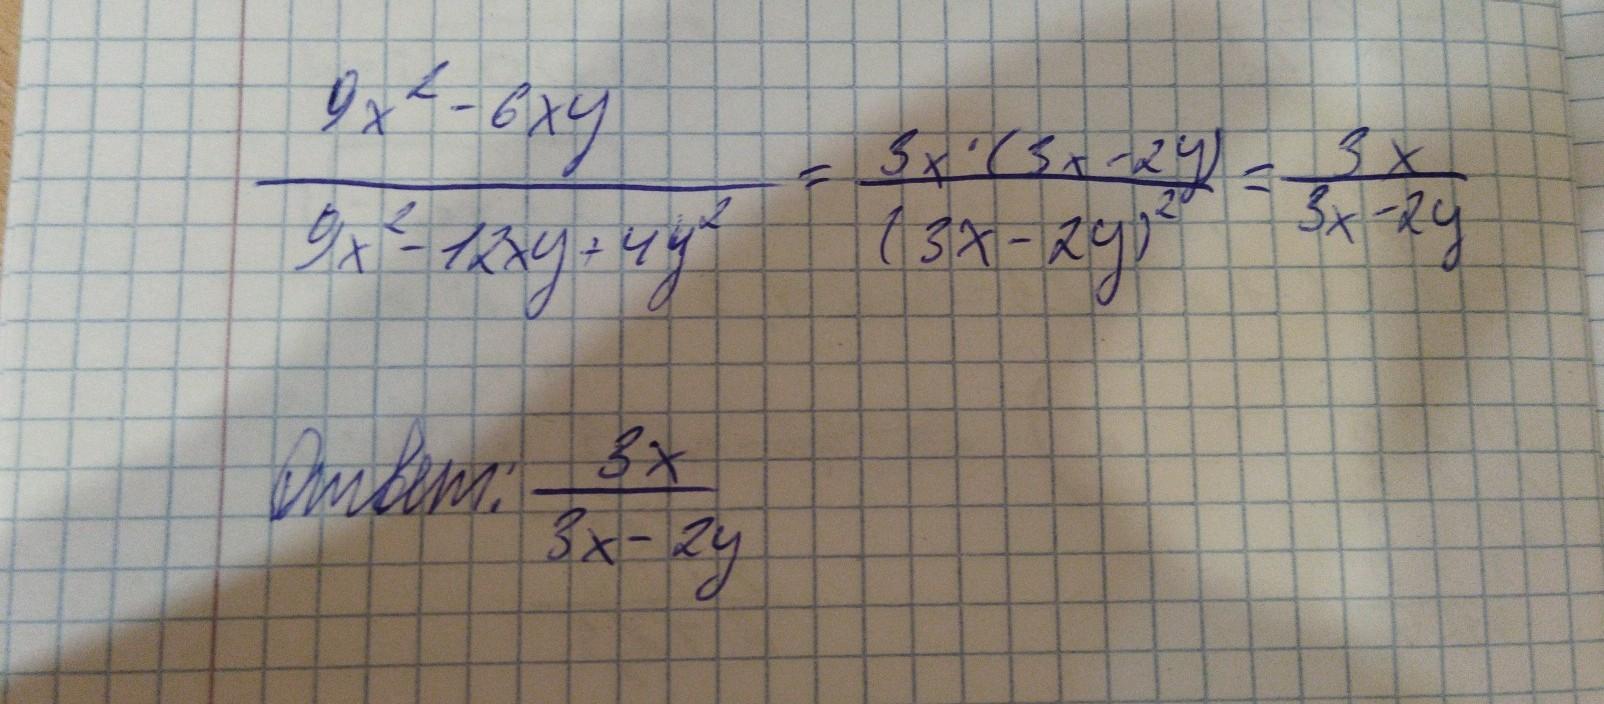 9x² - 6xy
9x² - 12xy + 4y² = 3x · (3x - 2y) / (3x - 2y)² = 3x / 3x - 2y
Ответ: 3x / 3x - 2y